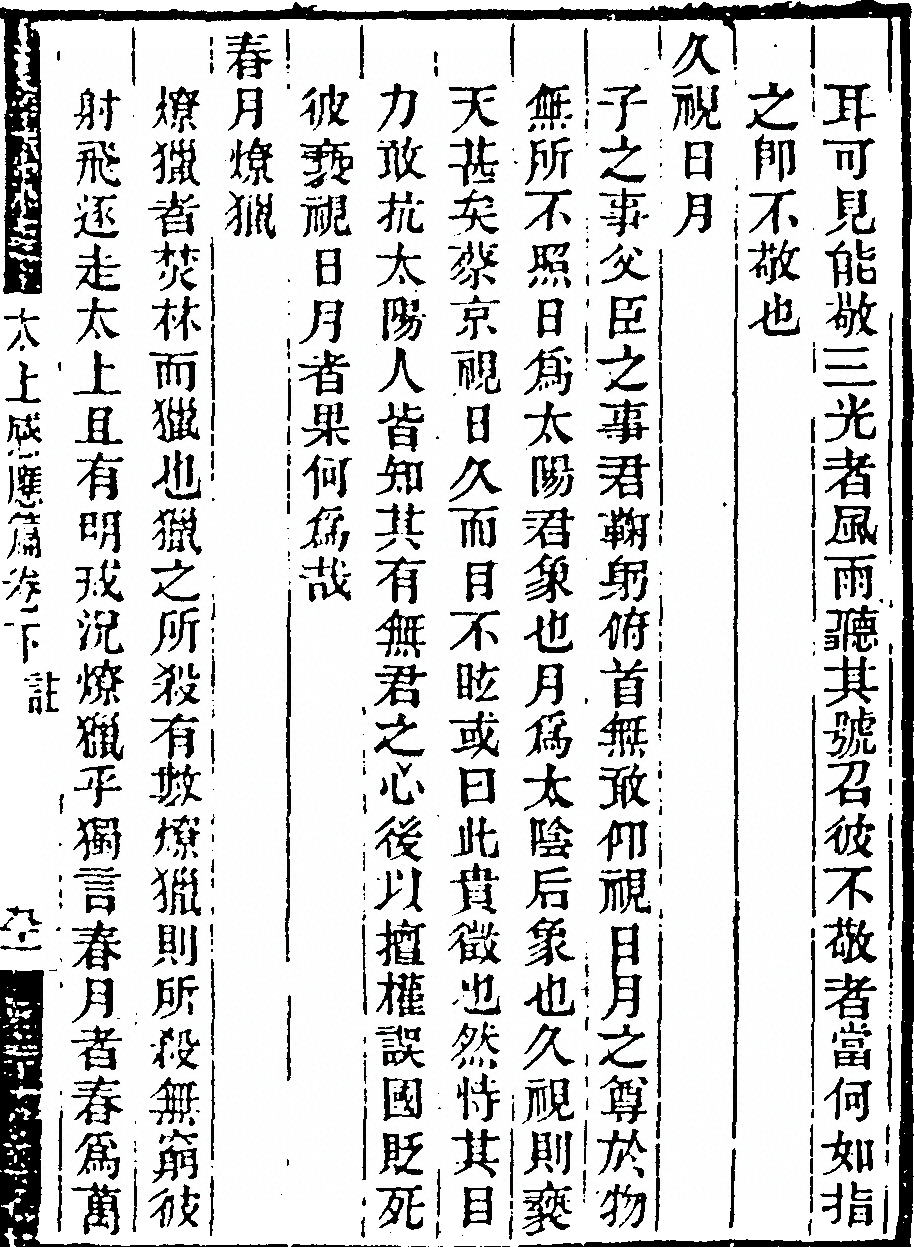 耳可見能敬三光者風雨聽其號召彼不敬者當何如指
之卽不敬也
久視日月
子之事父臣之事君鞠躬俯首無敢仰視日月之尊於物
無所不照日爲太陽君象也月爲太陰后象也久視則褻
天甚矣蔡京視日久而目不眩或曰此貴徵也然恃其目
力敢抗太陽人皆知其有無君之心後以擅權誤國貶死
彼褻視日月者果何爲哉
春月燎獵
燎獵者焚林而獵也獵之所殺有數燎獵則所殺無窮彼
射飛逐走太上且有明戒況燎獵乎獨言春月者春爲萬
太上感應篇卷下
註